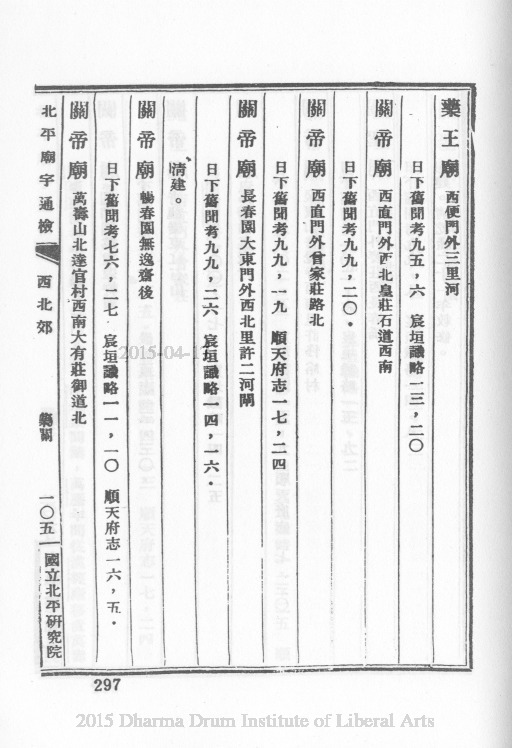 藥王廟 西便門外三里河
日下舊聞考九五，六 宸垣識略一三，二〇
關帝廟 西直門外西北皇莊石道西南
日下舊聞考九九，二〇。
關帝廟 西直門外曾家莊路北
日下舊聞考九九，一九 順天府志一七，二四
關帝廟 長春園大東門外西北里許二河閘
日下舊聞考九九，二六 宸垣識略一四，一六。
清建。
關帝廟 暢春園無逸齋後
日下舊聞考七六，二七 宸垣識略一一，一〇 順天府志一六，五。
關帝廟 萬壽山北達官村西南大有莊御道北
北平廟宇通檢 西北郊 藥關 一〇五 國立北平研究院
297
2015-04-1
2015 Dharma Drum Institute of Liberal Arts